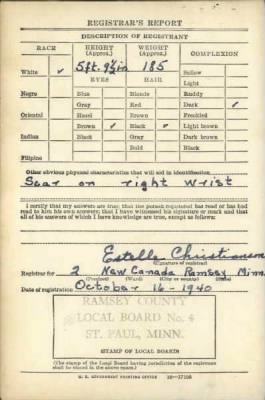 REGISTRAR'S REPORT
DESCRIPTION OF REGISTRANT
RACE HEIGHT (Approx.) WEIGHT (Approx.) COMPLEXION
White ✓ 5 ft. 9½ in 185 Sallow
Light
EYES HAIR
Negro Blue Blonde Ruddy
Gray Red Dark ✓
Oriental Hazel Brown Freckled
Brown ✓ Black ✓ Light brown
Indian Black Gray Dark brown
Bald Black
Filipino
Other obvious physical characteristics that will aid in identification
Scar on right wrist
I certify that my answers are true; that the person registered has read or has had
read to him his own answers; that I have witnessed his signature or mark and that
all of his answers of which I have knowledge are true, except as follows:
Estella Christianson
(Signature of registrar)
Registrar for 2 New Canada Ramsey Minn.
(Precinct) (Ward) (City or county) (State)
Date of registration October 16-1940
RAMSEY COUNTY
LOCAL BOARD No.
ST. PAUL, MINN.
STAMP OF LOCAL BOARD
(The stamp of the Local Board having jurisdiction of the registrant
shall be placed in the above space.)
U. S. GOVERNMENT PRINTING OFFICE 16—17105